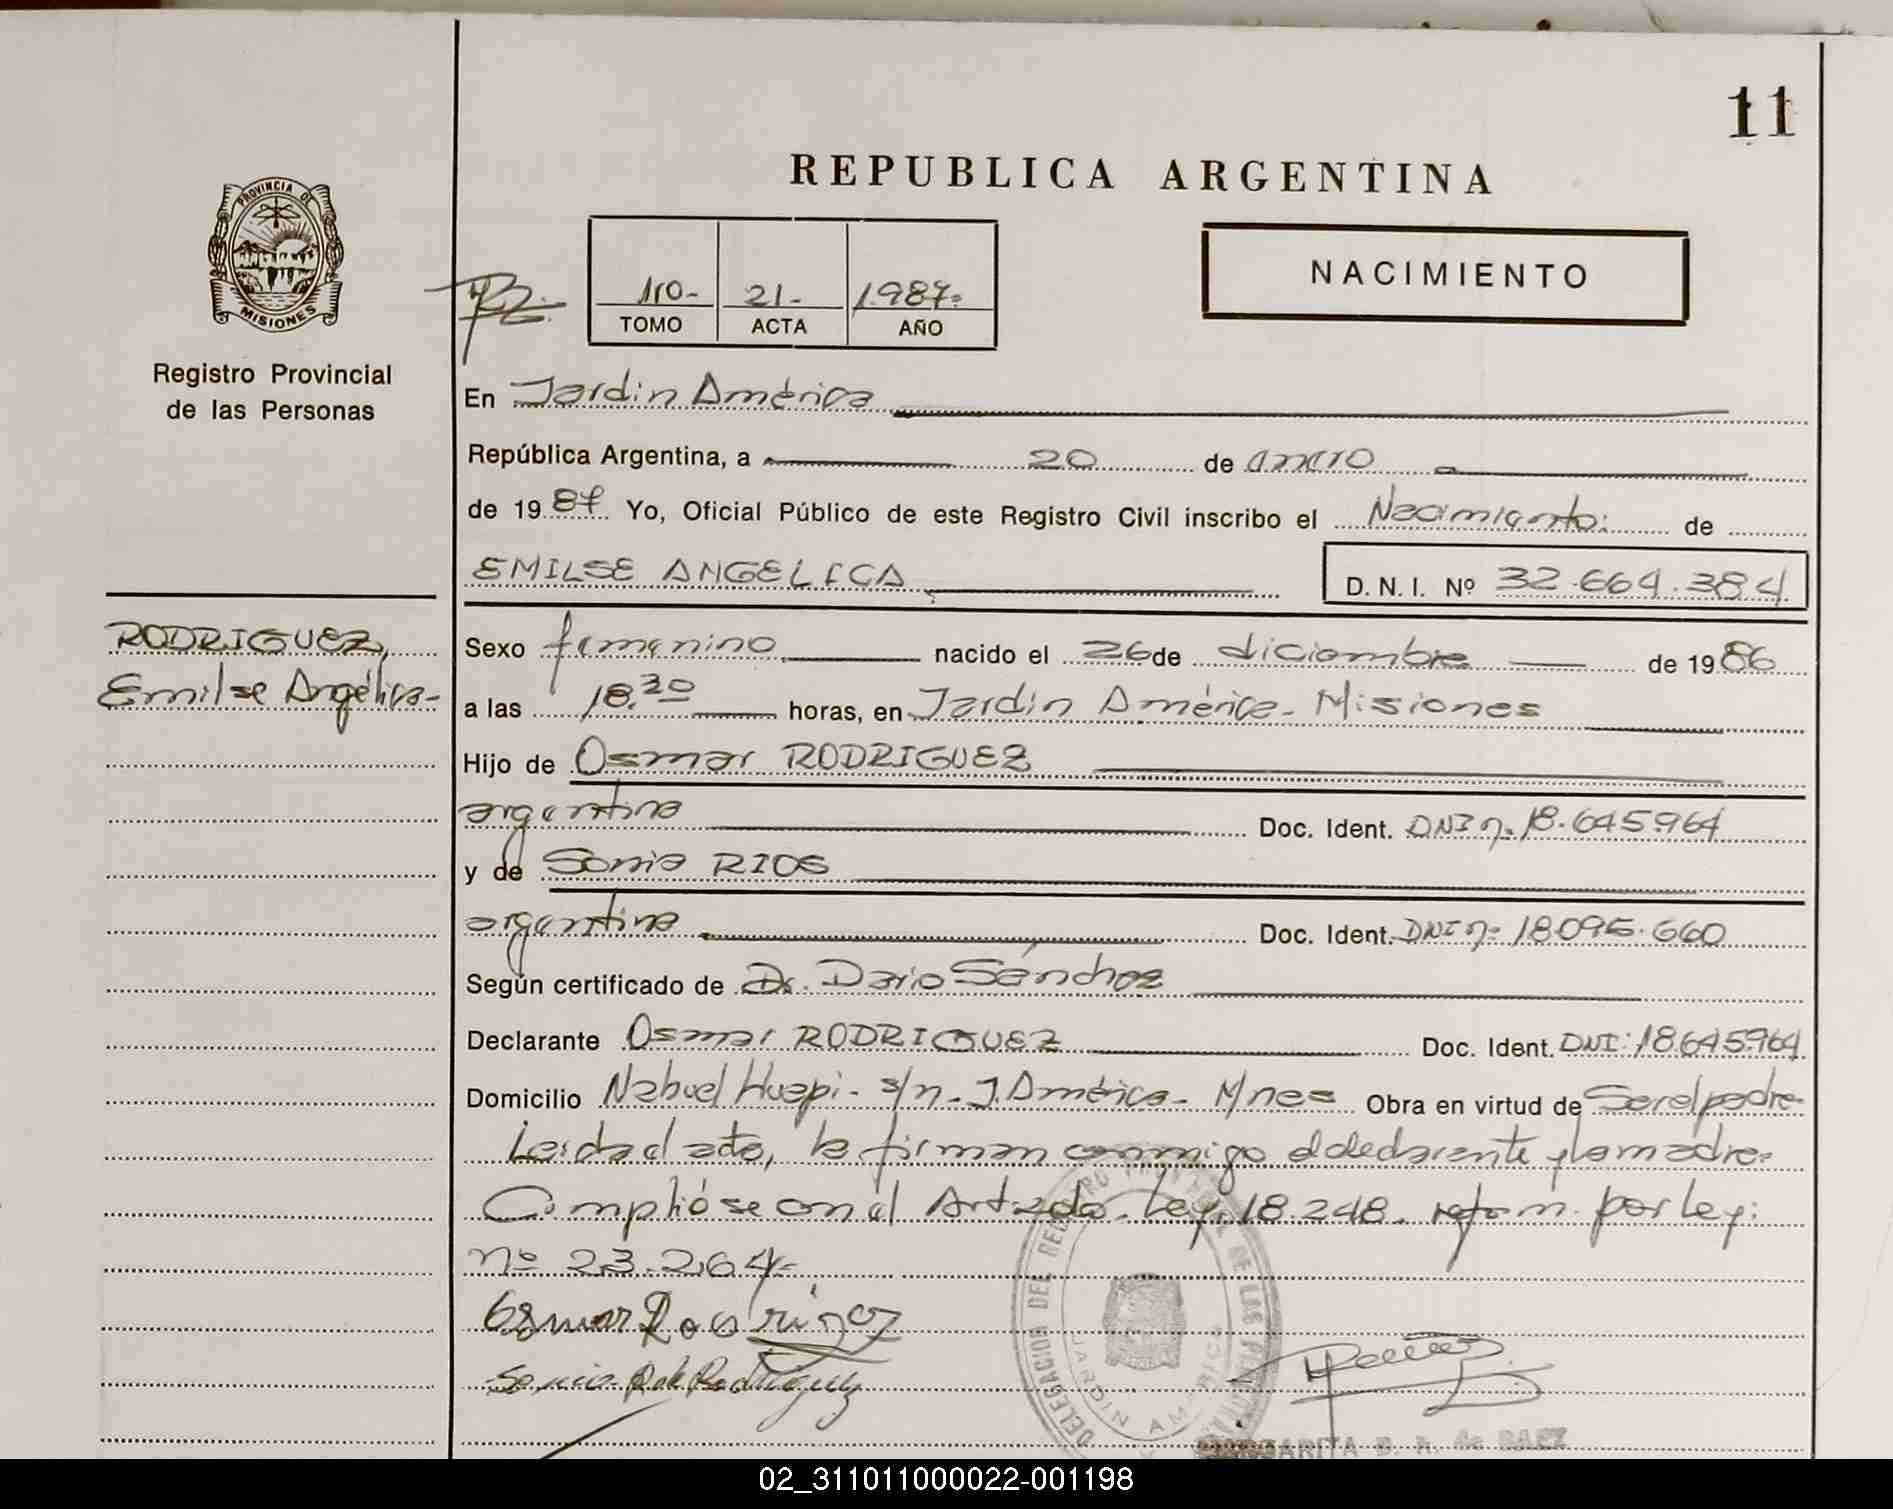 11
REPUBLICA ARGENTINA
PROVINCIA DE MISIONES
Registro Provincial de las Personas
1º0- 21- 1987=
TOMO ACTA AÑO
NACIMIENTO
En Jardín América
República Argentina, a 20 de enero
de 1987 Yo, Oficial Público de este Registro Civil inscribo el Nacimiento: de
EMILSE ANGELICA D. N. I. Nº 32.664.384
RODRIGUEZ,
Emilse Angélica-
Sexo femenino nacido el 26 de diciembre de 1986
a las 18.30 horas, en Jardín América- Misiones
Hijo de Osmar RODRIGUEZ
argentina Doc. Ident. DNI nº 18.645.964
y de Sonia RIOS
argentina Doc. Ident. DNI nº 18.095.660
Según certificado de Dr. Dario Sánchez
Declarante Osmar RODRIGUEZ Doc. Ident. DNI: 18.645.964
Domicilio Nahuel Huapi- s/n- J. América- Mnes Obra en virtud de Ser el padre-
Leída el acta, la firman conmigo el declarante y la madre=
Cumplióse con el Art. 2do. Ley 18.248. reform. por ley:
nº 23.264-
Osmar Rodriguez
Sonia R de Rodriguez
DELEGACION DEL REGISTRO PROVINCIAL DE LAS PERSONAS
JARDIN AMERICA
MARGARITA B. R. de BAEZ
02_311011000022-001198